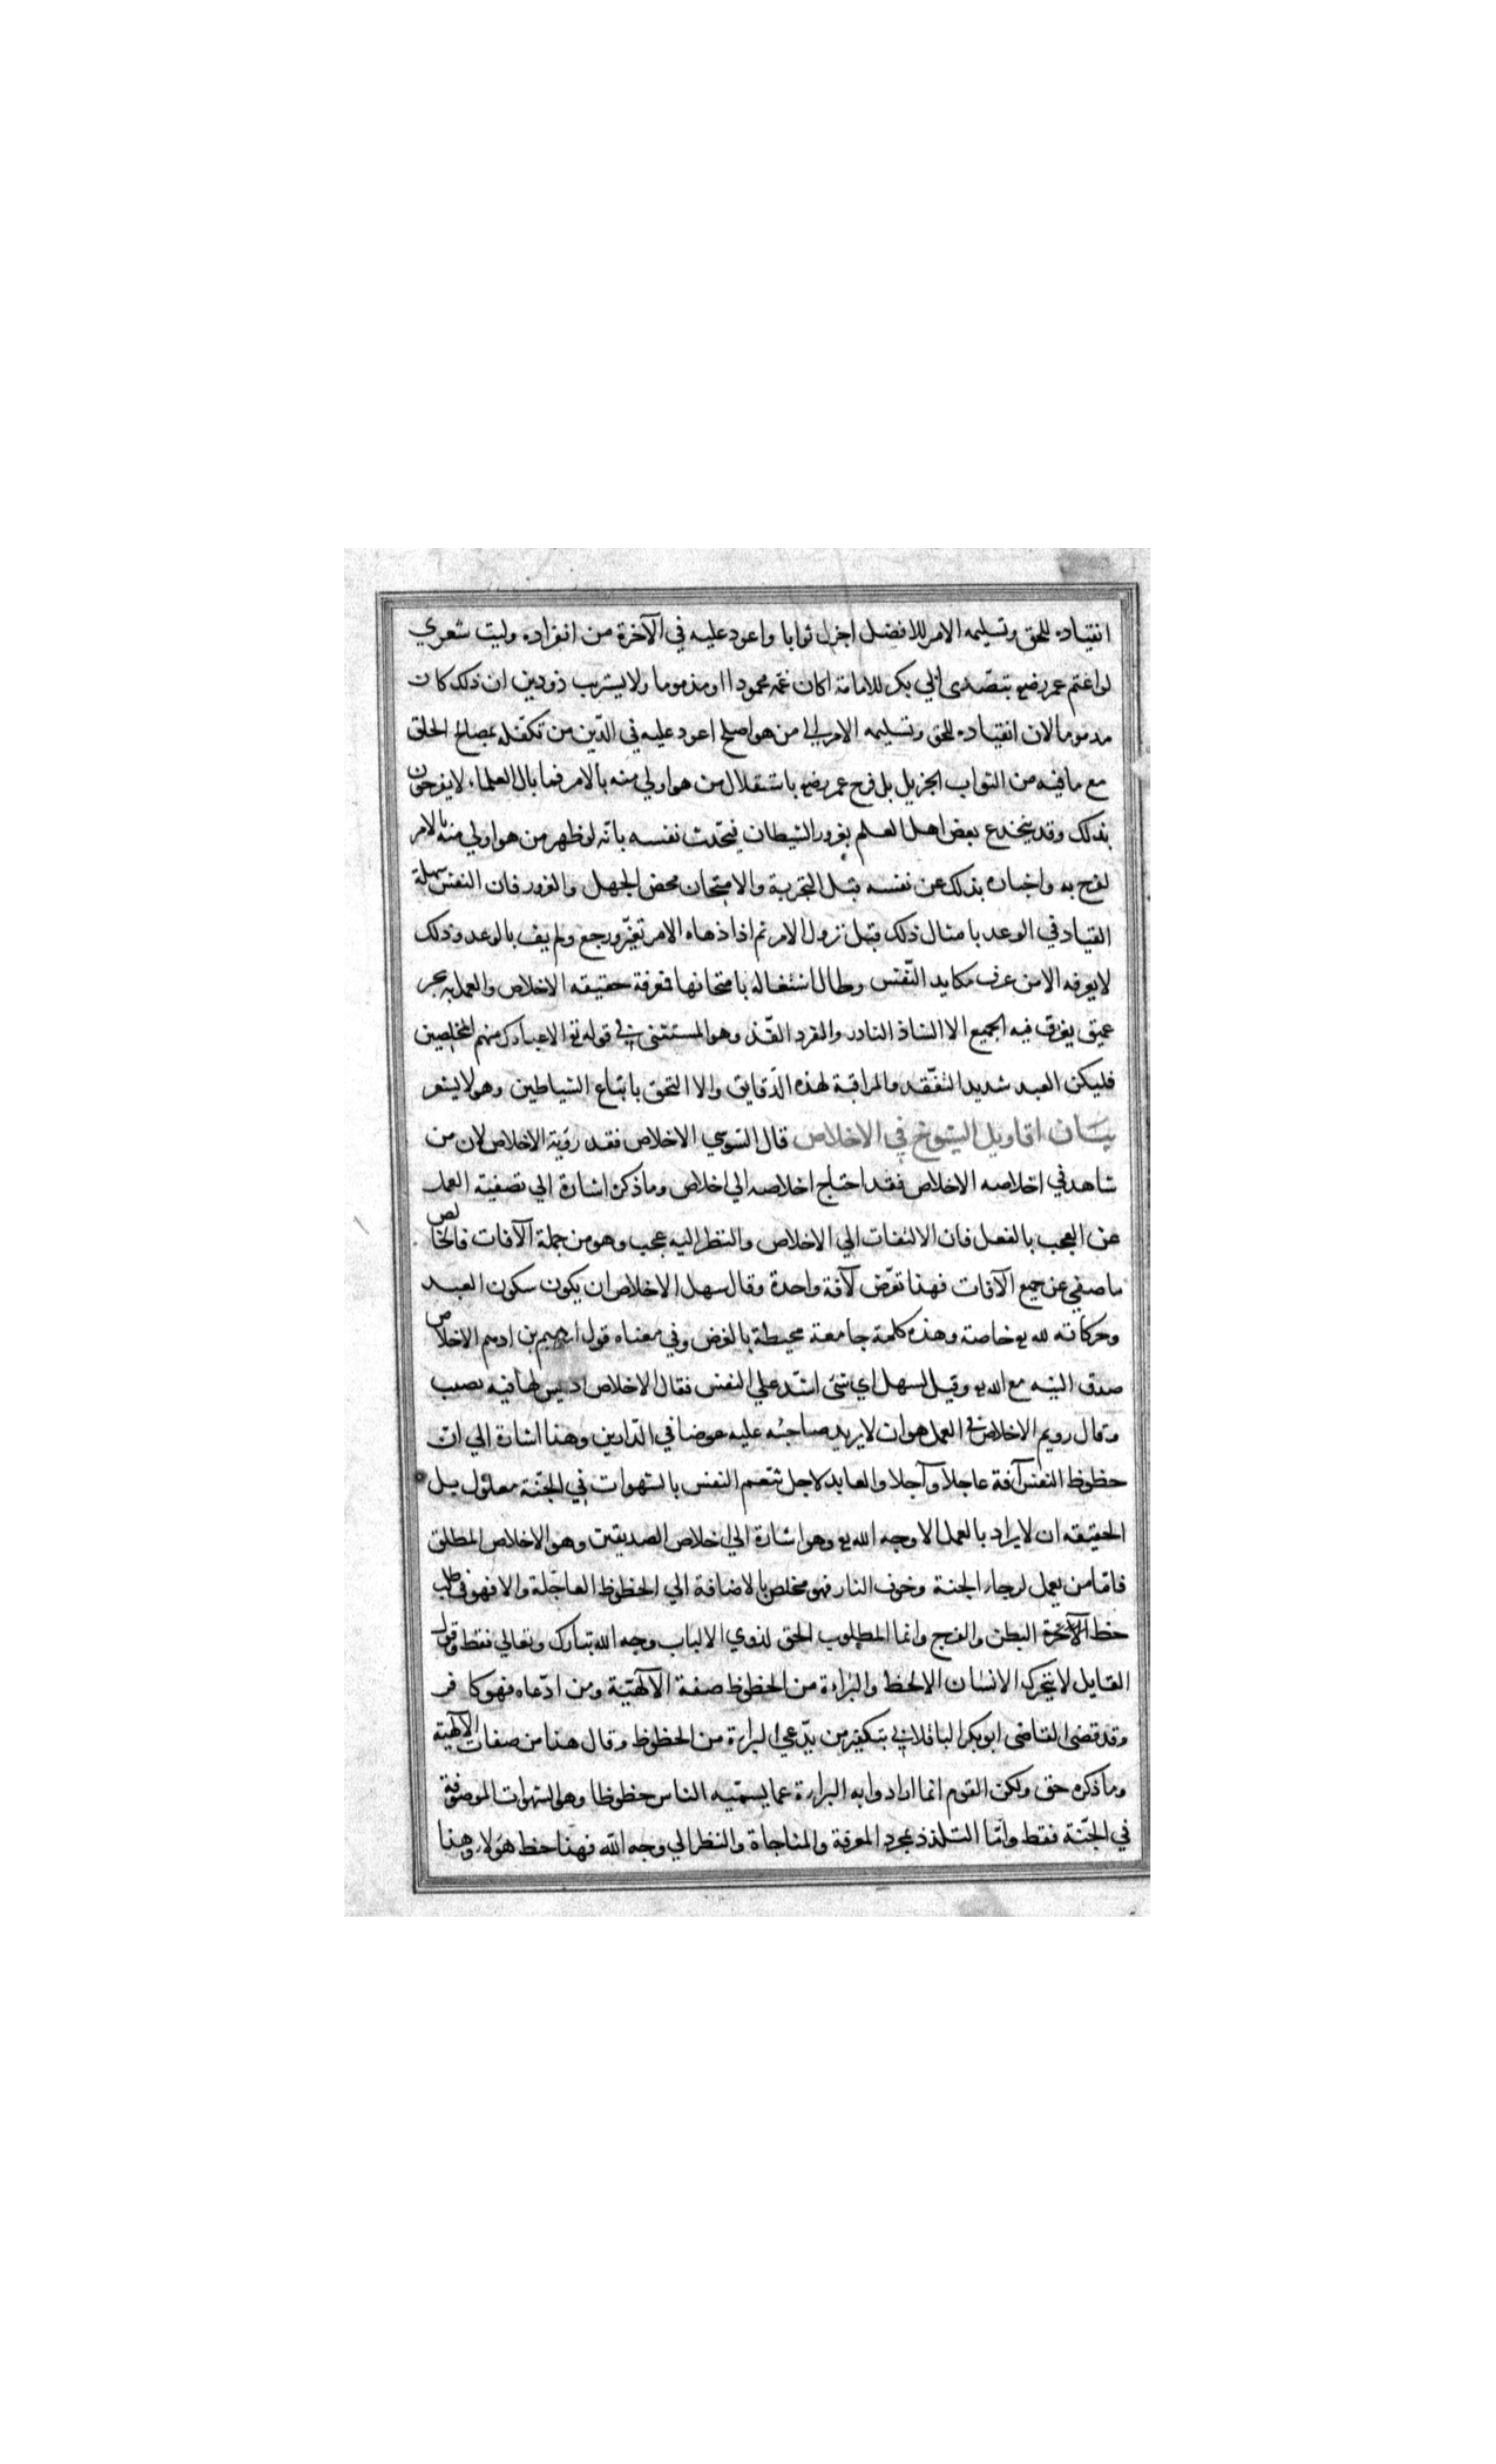 انقياده للحق وتسليمه الامر للافضل اجزل ثوابا واعود عليه في الآخرة من انفراده وليت شعري
لو اغتم عمر رضه بتصدى ابي بكر للامامة اكان غمه محمودا او مذموما ولا يستريب ذو دين ان ذلك كان
مذموما لان انقياده للحق وتسليمه الامر الى من هو اصلح اعود عليه في الدّين من تكفّله بمصالح الخلق
مع ما فيه من الثواب الجزيل بل فرح عمر رضه باستقلال من هو اولى منه بالامر فما بال العلماء لا يفرحون
بذلك وقد ينخدع بعض اهل العلم بغرور الشيطان فيحّدث نفسه بانّه لو ظهر من هو اولي منه بالامر
لفرح به واخباره بذلك عن نفسه قبل التجربة والامتحان محض الجهل والغرور فان النفس سهلة
القياد في الوعد بامثال ذلك قبل نزول الامر ثم اذا دهاه الامر تغيّر ورجع ولم يف بالوعد وذلك
لا يعرفه الا من عرف مكايد النّفس وطال اشتغاله بامتحانها فمعرفة حقيقه الاخلاص والعمل به بحر
عميق يغرق فيه الجميع الا الشاذ النادر والفرد الفّذ وهو المستثنى في قوله تع الا عبادك منهم المخلصين
فليكن العبد شديد التفّقد والمراقبة لهذه الدّقايق والا التحق باتباع الشياطين وهو لا يشعر
بيان اقاويل الشيوخ في الاخلاص قال السّوسي الاخلاص فقد رؤية الاخلاص لان من
شاهد في اخلاصه الاخلاص فقد احتاج اخلاصه الي اخلاص وما ذكره اشارة الي تصفيته العمل
عن العجب بالفعل فان الالتفات الي الاخلاص والنظر اليه عجب وهو من جملة الآفات فالخالص
ما صفي عن جميع الآفات فهذا تعرّض لآفة واحدة وقال سهل الاخلاص ان يكون سكون العبد
وحركاته لله تع خاصة وهذه كلمة جامعة محيطة بالغرض وفي معناه قول ابرهيم بن ادهم الاخلاص
صدق النيه مع الله تع وقيل لسهل اي شئ اشدّ علي النفس فقال الاخلاص اذ ليس لها فيه نصيب
وقال رويم الاخلاص في العمل هو ان لا يريد صاحبه عليه عوضا في الدّارين وهذا اشارة الي ان
حظوظ النفس آفة عاجلا وآجلا والعابد لاجل تنعم النفس بالشهوات في الجنّة معلول بل
الحقيقه ان لا يراد بالعمل الا وجه الله تع وهو اشارة الي اخلاص الصديقين وهو الاخلاص المطلق
فامّا من يعمل لرجاء الجنة وخوف النار فهو مخلص بالاضافة الي الحظوظ العاجّلة والا فهو في طلب
حظ الآخرة البطن والفرج وانما المطلوب الحق لذوي الالباب وجه الله تبارك وتعالي فقط وقول
القايل لا يتحرك الانسان الا لحظ والبراءة من الحظوظ صفة الآلهيّة ومن ادّعاه فهو كافر
وقد قضى القاضى ابو بكر الباقلاني بتكفير من يدّعي البراءة من الحظوظ وقال هذا من صفات الالهية
وما ذكره حق ولكن القوم انما ارادوا به البراءة عما يسمّيه الناس حظوظا وهو الشهوات الموصوفة
في الجنّة فقط وامّا التلذذ بمجرد المعرفة والمناجاة والنظر الي وجه الله فهذا حظ هؤلاء وهذا